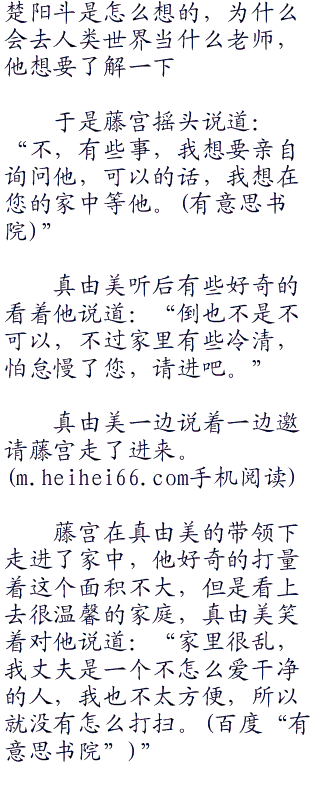 楚阳斗是怎么想的，为什么
会去人类世界当什么老师，
他想要了解一下
于是藤宫摇头说道：
“不，有些事，我想要亲自
询问他，可以的话，我想在
您的家中等他。(有意思书
院)”
真由美听后有些好奇的
看着他说道：“倒也不是不
可以，不过家里有些冷清，
怕怠慢了您，请进吧。”
真由美一边说着一边邀
请藤宫走了进来。
(m.heihei66.com手机阅读)
藤宫在真由美的带领下
走进了家中，他好奇的打量
着这个面积不大，但是看上
去很温馨的家庭，真由美笑
着对他说道：“家里很乱，
我丈夫是一个不怎么爱干净
的人，我也不太方便，所以
就没有怎么打扫。(百度“有
意思书院”)”